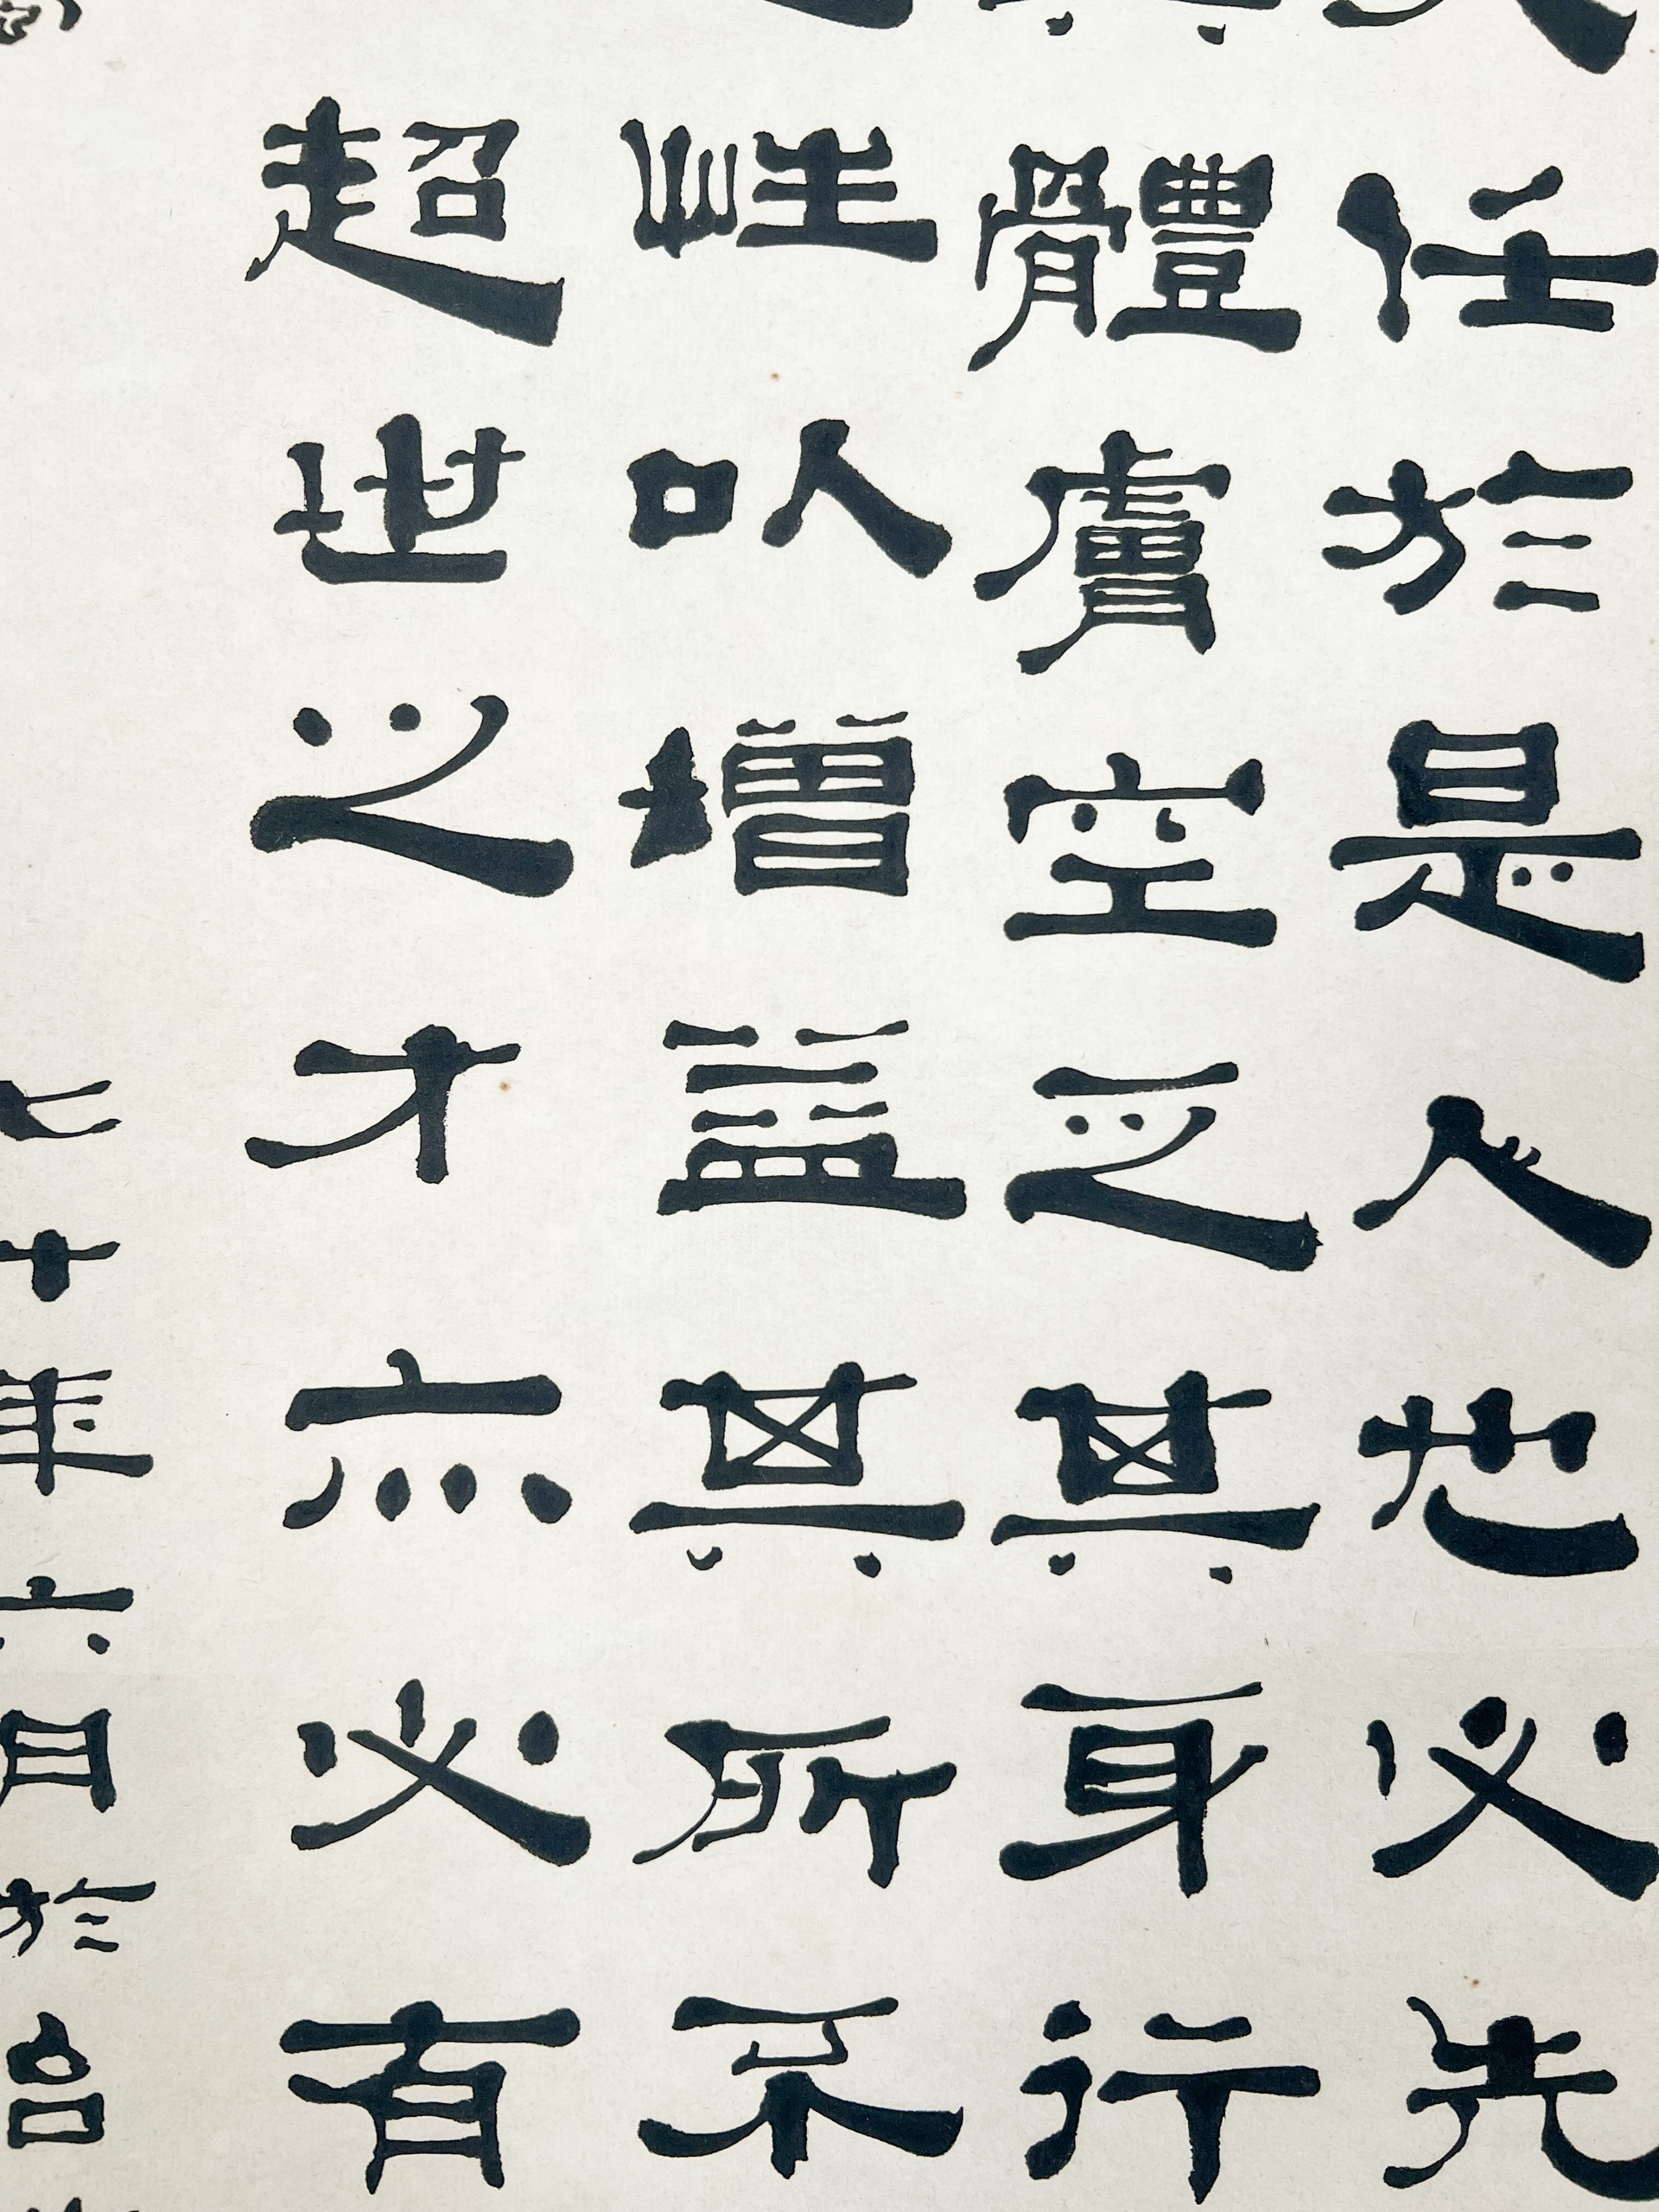 任於是人也必先
體膚空乏其身行
性㕥增益其所不
超世之才亦必有
七十年六月於台